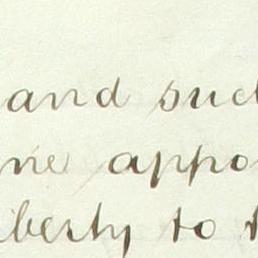 and suc
me appo
iberty to t